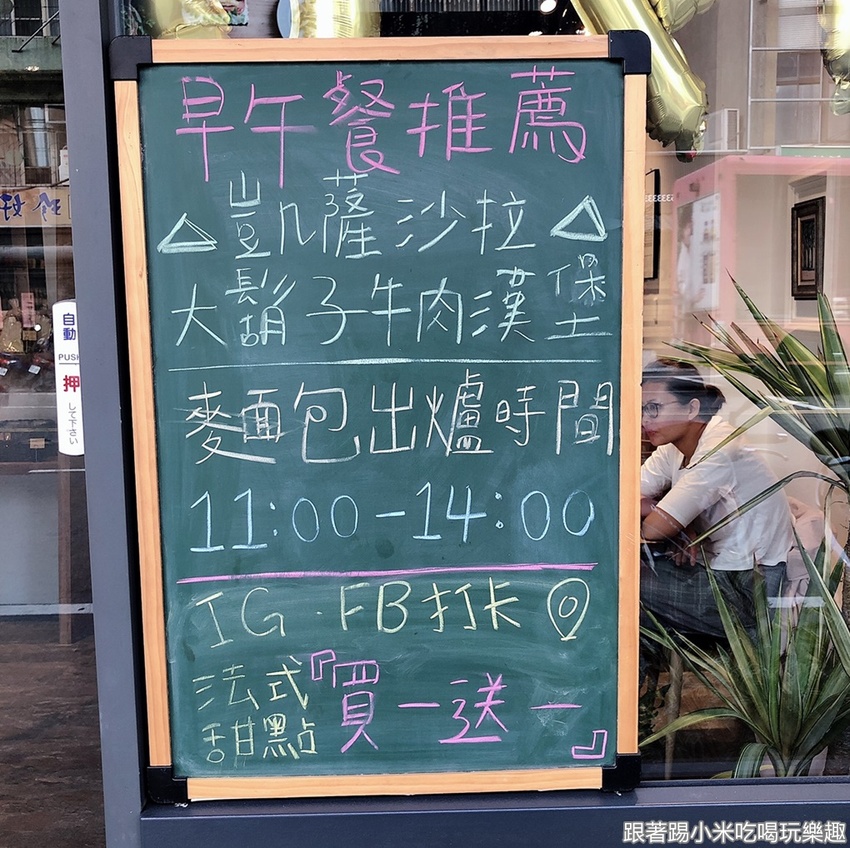 早午餐推薦
△凱薩沙拉△
大鬍子牛肉漢堡
麵包出爐時間
11:00-14:00
IG.FB打卡
法式甜點『買一送一』
自動
PUSH
押
して下さい
跟著踢小米吃喝玩樂趣